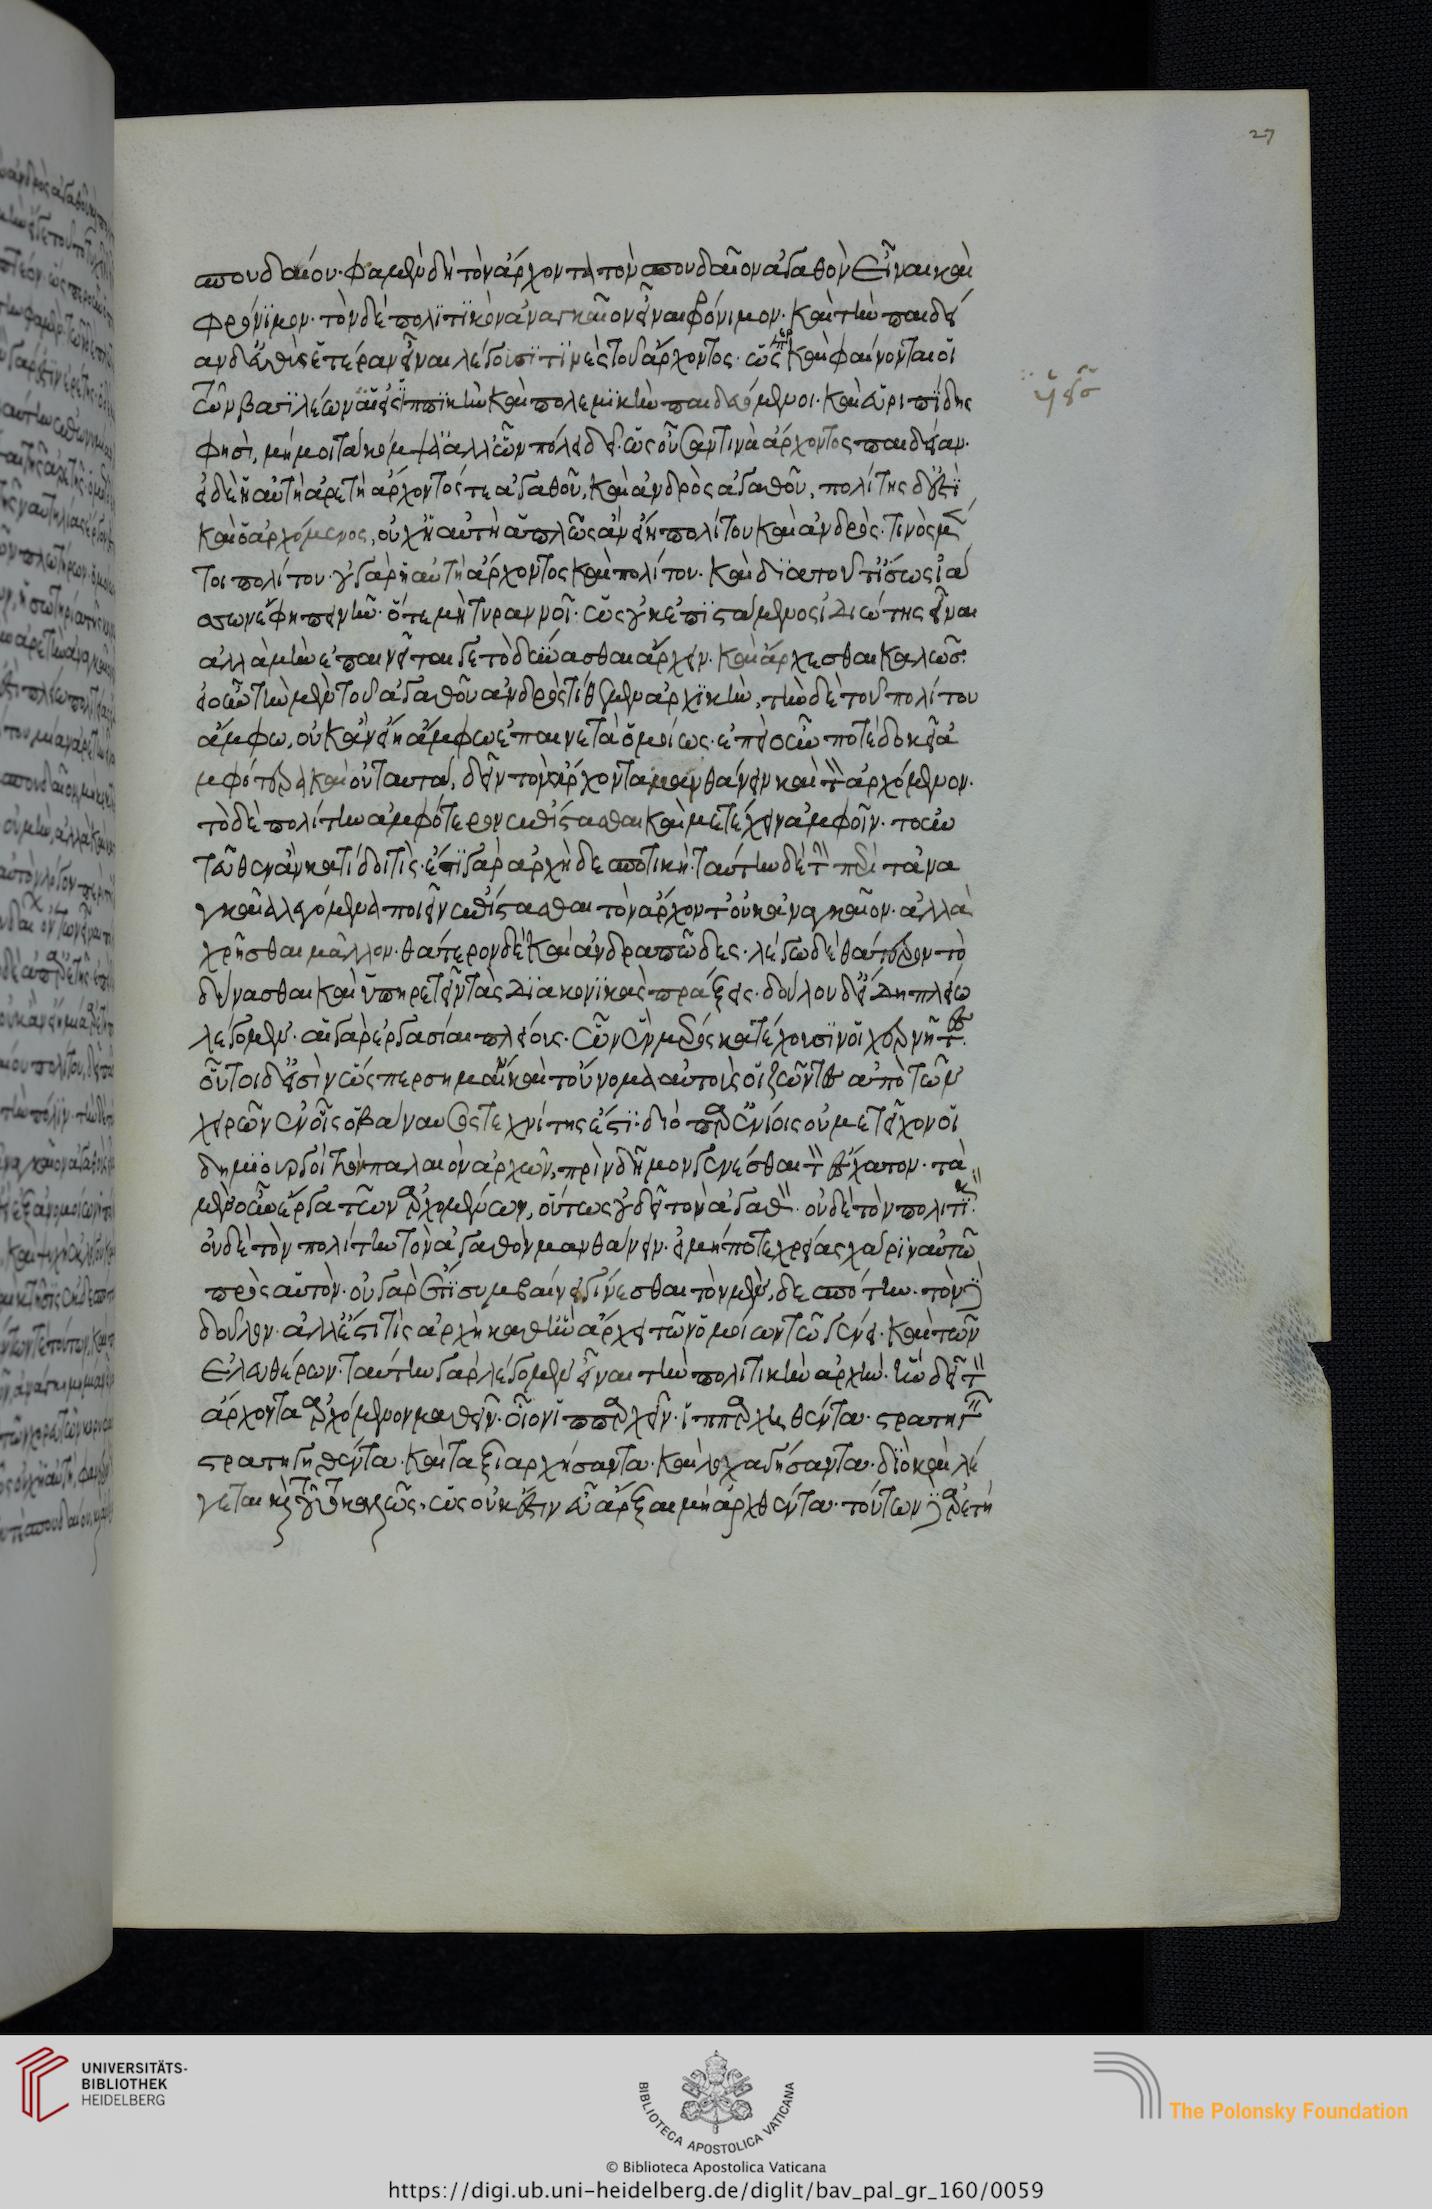 σπουδαίου· φαμὲν δὴ τὸν ἄρχοντα τὸν σπουδαῖον ἀγαθὸν εἶναι καὶ
φρόνϊμον· τὸν δὲ πολϊτϊκὸν ἀναγκαῖον εἶναι φρόνιμον· καὶ τὴν παιδεί
αν δ' εὐθὺς ἑτέραν εἶναι λέγουσϊ τϊνὲς τοῦ ἄρχοντος· ὥσπερ καὶ φαίνονται οἱ
τῶν βασϊλέων υἱεῖς ἱππϊκὴν καὶ πολεμϊκὴν παιδευόμενοι· καὶ εὐριπίδης
φησὶ, μή μοι τὰ κόμψ' ἀλλ' ὧν πόλει δεῖ· ὡς οὖσαν τινὰ ἄρχοντος παιδείαν·
εἰ δὲ ἡ αὐτὴ ἀρετὴ ἄρχοντός τε ἀγαθοῦ, καὶ ἀνδρὸς ἀγαθοῦ, πολίτης δ' ἐστὶ
καὶ ὁ ἀρχόμενος, οὐχ ἡ αὐτὴ ἁπλῶς ἂν εἴη πολίτου καὶ ἀνδρός· τινὸς μέν
τοι πολίτου· οὐ γὰρ ἡ αὐτὴ ἄρχοντος καὶ πολίτου· καὶ διὰ τοῦτ' ἴσως ἰά
σων ἔφη πεινῆν· ὅτε μὴ τυραννοῖ· ὡς οὐκ ἐπϊστάμενος ἰδιώτης εἶναι
ἀλλὰ μὴν ἐπαινεῖται γε τὸ δύνασθαι ἄρχειν· καὶ ἄρχεσθαι καλῶς·
εἰ οὖν τὴν μὲν τοῦ ἀγαθοῦ ἀνδρὸς τίθεμεν ἀρχϊκὴν, τὴν δὲ τοῦ πολίτου
ἄμφω, οὐκ ἂν εἴη ἄμφω ἐπαινετὰ ὁμοίως· ἐπεὶ οὖν ποτὲ δοκεῖ ἀ
μφότερα καὶ οὐ ταυτά, δεῖν τὸν ἄρχοντα μανθάνειν καὶ τὸν ἀρχόμενον·
τὸ δὲ πολίτην ἀμφότερον ἐπίστασθαι καὶ μετέχειν ἀμφοῖν· τοὐν
τεῦθεν ἂν κατίδοι τίς· ἔστϊ γὰρ ἀρχὴ δεσποτικὴ· ταύτην δὲ τὴν περὶ τἀνα
γκαῖα λεγόμενα ποιεῖν ἐπίστασθαι τὸν ἄρχοντ' οὐκ ἀναγκαῖον· ἀλλὰ
χρῆσθαι μᾶλλον· θάτερον δὲ καὶ ἀνδραποδῶδες· λέγω δὲ θάτερον τὸ
δύνασθαι καὶ ὑπηρετεῖν τὰς διακονϊκὰς πράξεις· δούλου δ' εἴδη πλείω
λέγομεν· αἱ γὰρ ἐργασίαι πλείους· ὧν ἓν μέρος κατέχουσϊν οἱ χερνῆτες·
οὗτοι δ' εἰσὶν ὥσπερ σημαίνει καὶ τοὔνομα αὐτοὺς οἱ ζῶντες ἀπὸ τῶν
χειρῶν ἐν οἷς ὁ βάναυσος τεχνίτης ἐστϊ· διὸ παρ' ἐνίοις οὐ μετεῖχον οἱ
δημϊουργοὶ τὸ παλαιὸν ἀρχῶν, πρὶν δῆμον γενέσθαι τὸν ἔσχατον· τὰ
μὲν οὖν ἔργα τῶν ἀρχομένων, οὕτως οὐ δεῖ τὸν ἀγαθὸν· οὐδὲ τὸν πολιτικὸν·
οὐδὲ τὸν πολίτην τὸν ἀγαθὸν μανθάνειν· εἰ μή ποτε χρείας χάρϊν αὐτῷ
πρὸς αὑτὸν· οὐ γὰρ ἔτι συμβαίνει γίνεσθαι τὸν μὲν, δεσπότην· τὸν δὲ
δοῦλον· ἀλλ' ἔστι τὶς ἀρχὴ καθ' ἣν ἄρχει τῶν ὁμοίων τῷ γένει· καὶ τῶν
ἐλευθέρων· ταύτην γὰρ λέγομεν εἶναι τὴν πολιτικὴν ἀρχὴν· ἣν δεῖ τὸν
ἄρχοντα ἀρχόμενον μαθεῖν· οἷον ἱππαρχεῖν· ἱππαρχηθέντα· στρατηγεῖν
στρατηγηθέντα· καὶ ταξιαρχήσαντα· καὶ λοχαγήσαντα· διὸ καὶ λέ
γεται καὶ τοῦτο καλῶς, ὡς οὐκ ἔστιν εὖ ἄρξαι μὴ ἀρχθέντα· τούτων δὲ ἀρετὴ
27
© Biblioteca Apostolica Vaticana
UNIVERSITÄTS-
BIBLIOTHEK
HEIDELBERG
BIBLIOTECA APOSTOLICA VATICANA
The Polonsky Foundation
https://digi.ub.uni-heidelberg.de/diglit/bav_pal_gr_160/0059